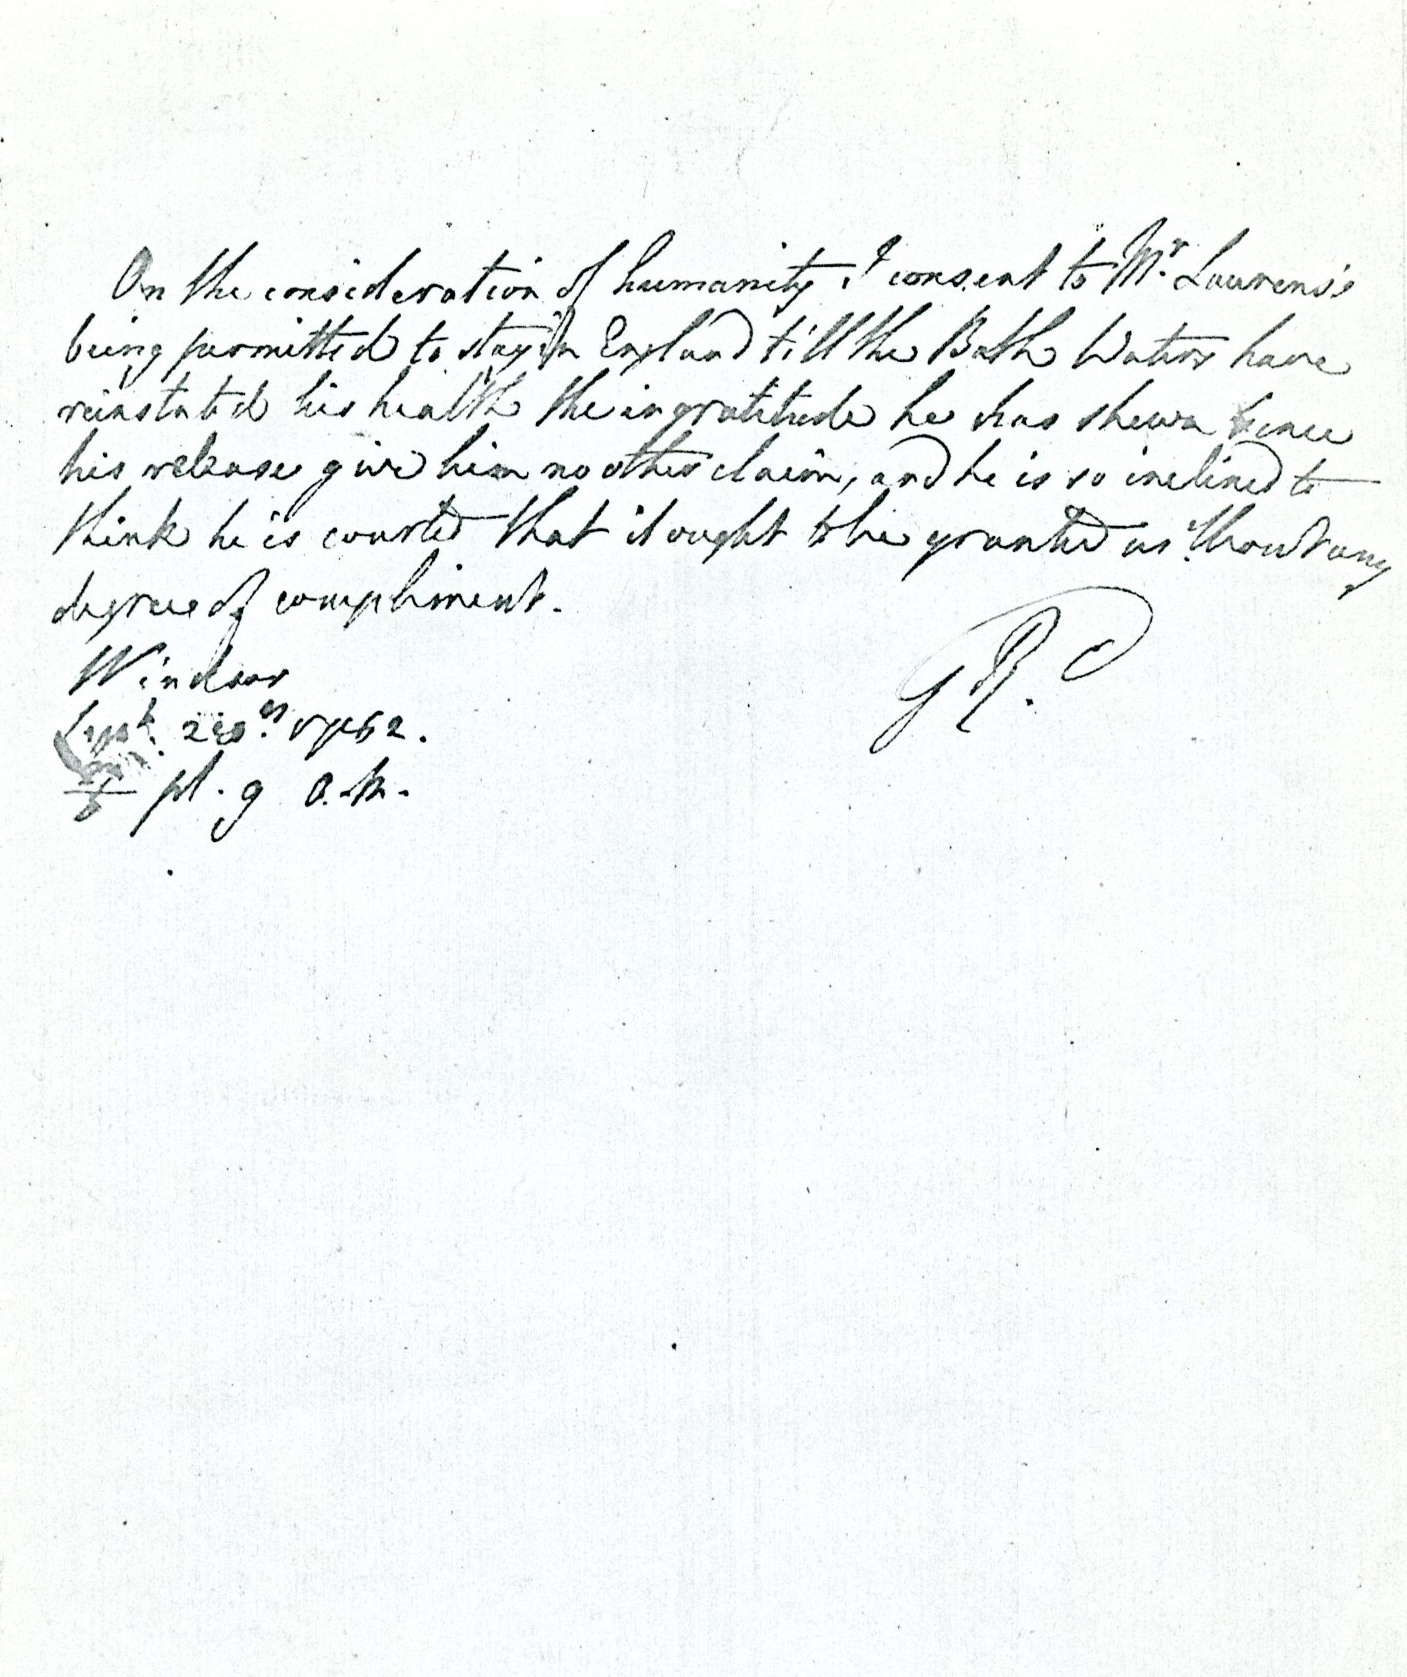 On the consideration of humanity I consent to Mr. Laurens's
being permitted to stay in England till the Bath Waters have
reinstated his health the ingratitude he has shewn since
his release give him no other claim, and he is so inclined to
think he is courted that it ought to be granted without any
degree of compliment.
GR.
Windsor
Sept. 1782.
pt. 9 A.M.